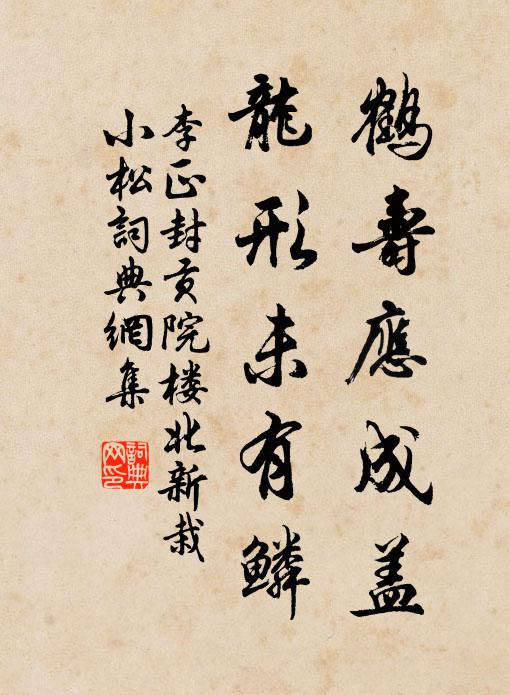 鶴壽應成蓋
龍形未有鱗
李正封貢院楼北新栽
小松詞典網集
詞典网印